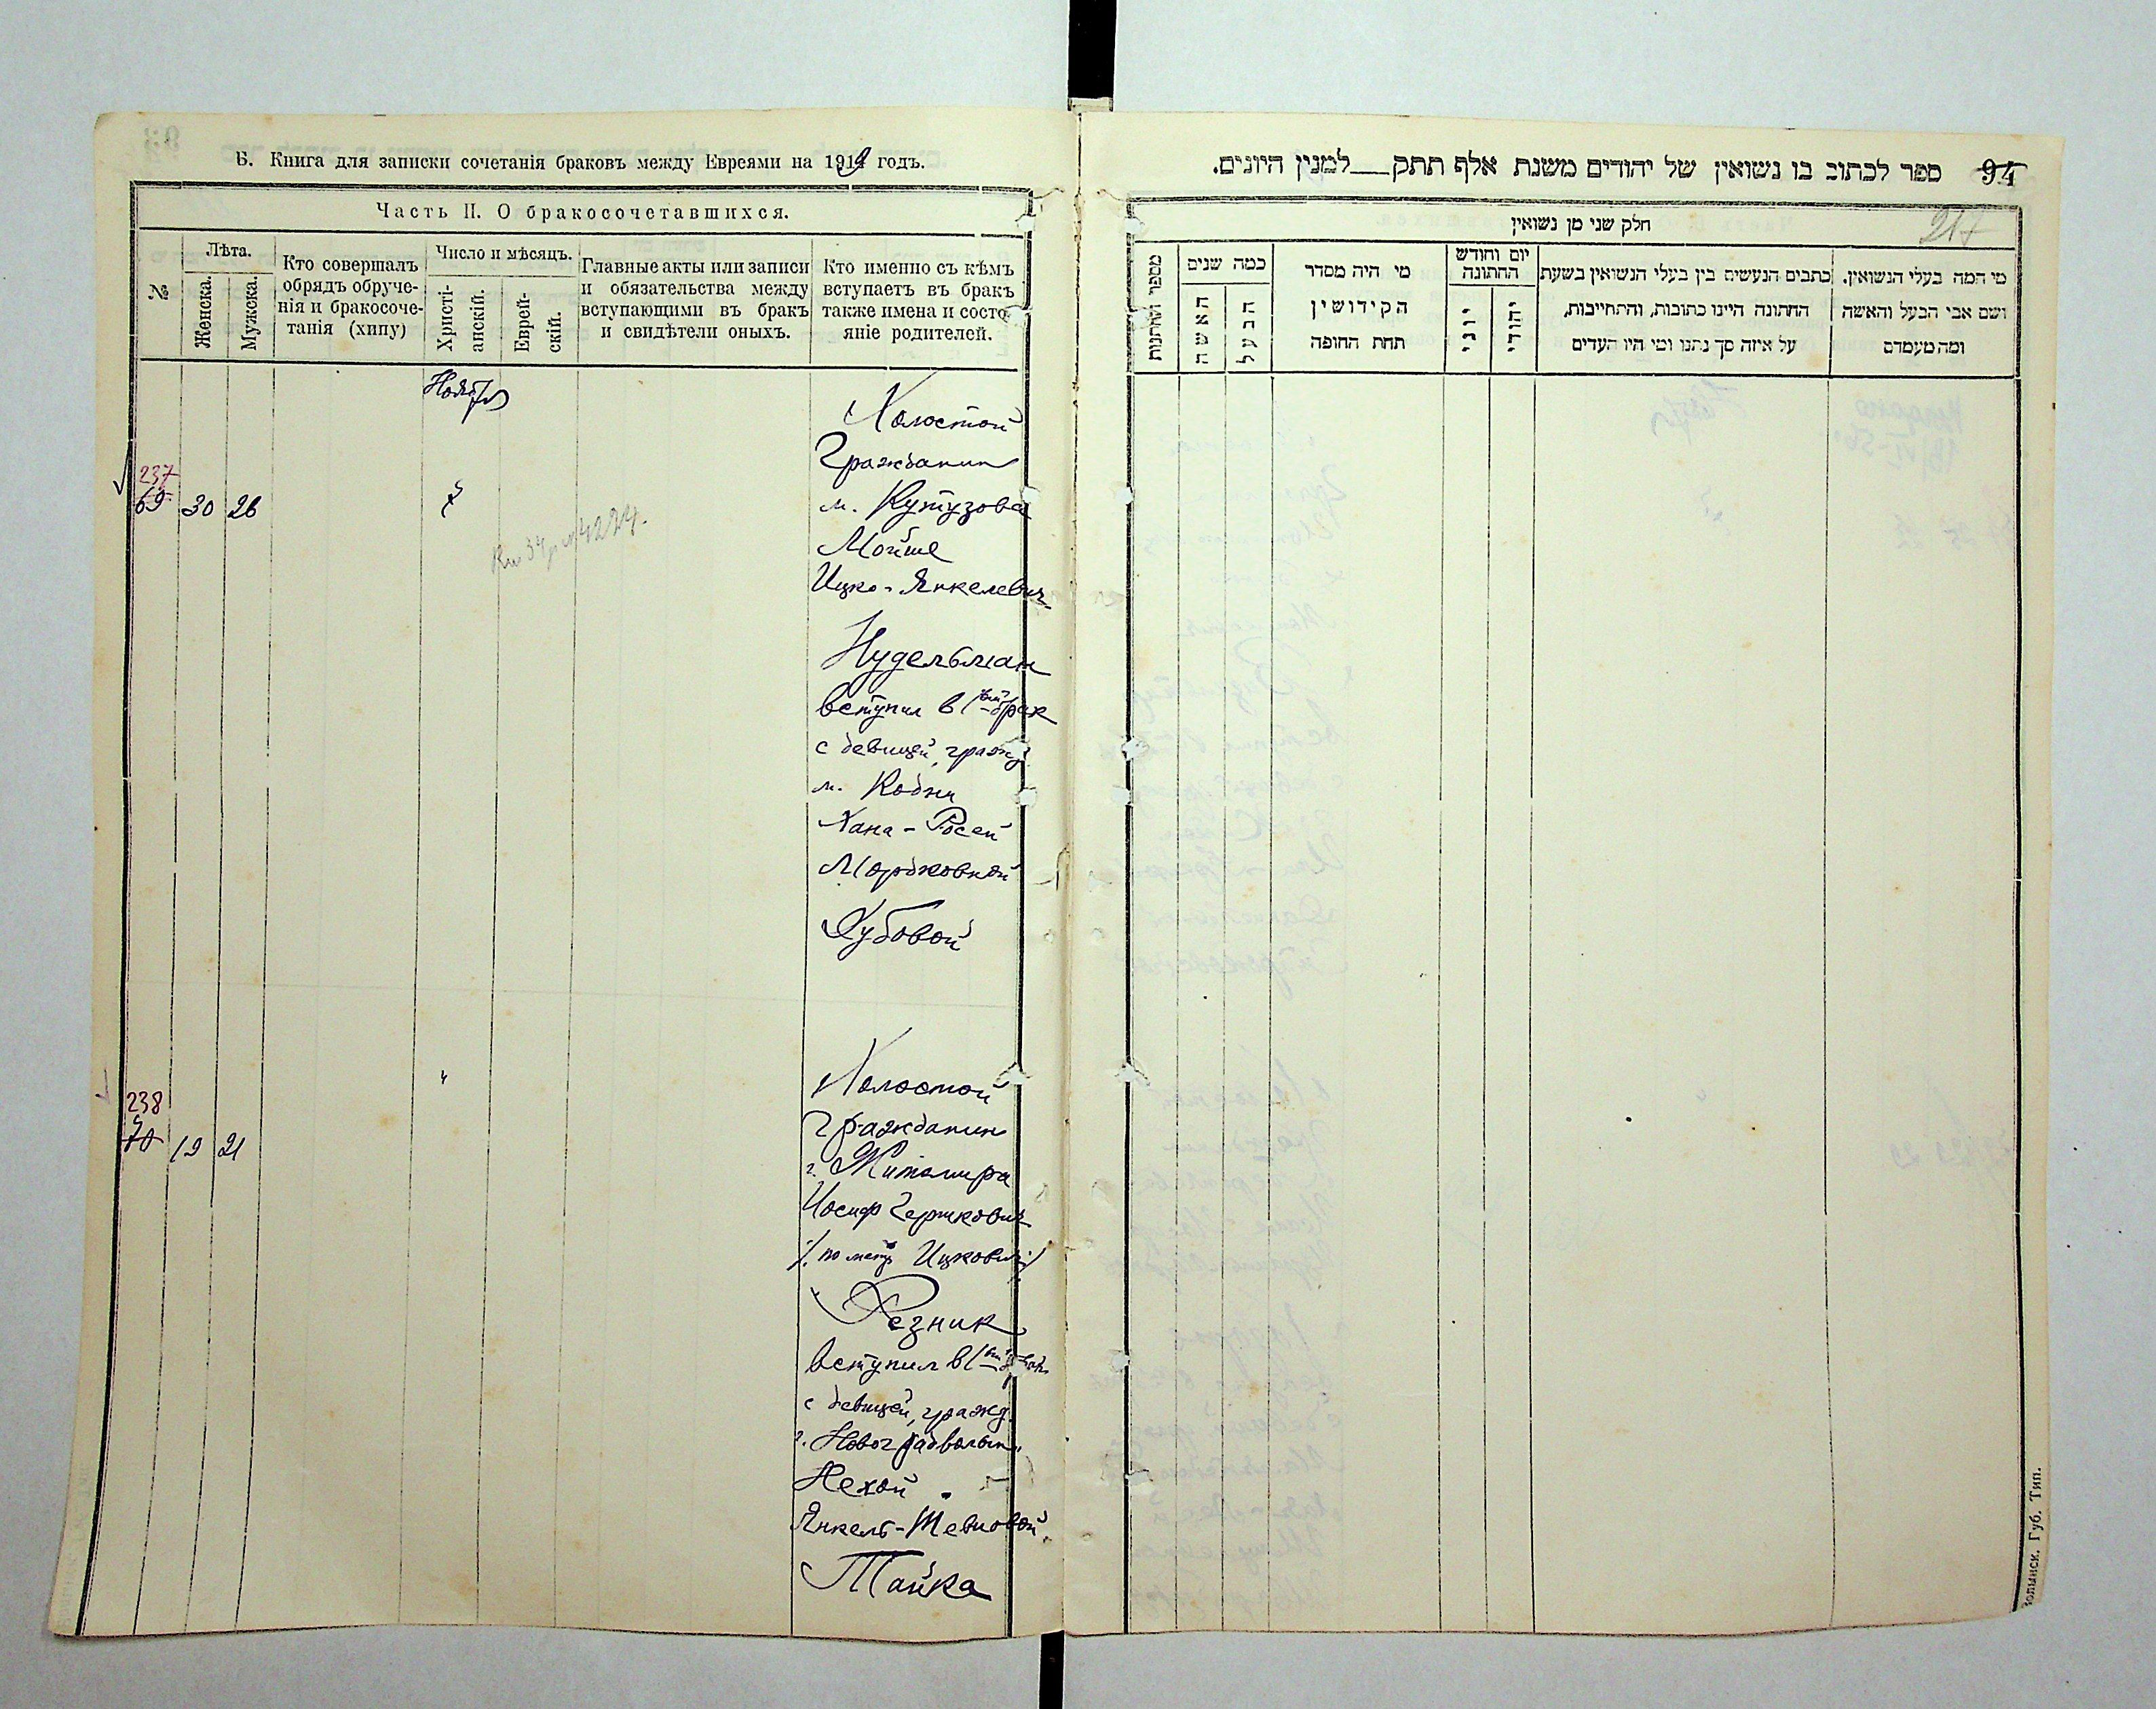 Б. Книга для записки сочетанія браковъ между Евреями на 1919 годъ.
Часть II. О бракосочетавшихся.
№
Лѣта.
Женска.
Мужска.
Кто совершалъ
обрядъ обруче-
нія и бракосоче-
танія (хипу)
Число и мѣсяцъ.
Христі-
анскій.
Еврей-
скій.
Главные акты или записи
и обязательства между
вступающими въ бракъ
и свидѣтели оныхъ.
Кто именно съ кѣмъ
вступаетъ въ бракъ
также имена и состо-
яніе родителей.
Ноября
237
69 30 26
Холостой
Гражданин
м. Кутузова
Мойше
Ицко-Янкелевич
Нудельман
вступил в 1ый брак
с девицей, гражд.
м. Кодни
Хана-Росей
Мордковной
Хубовой
238
70 19 21
"
Холостой
Гражданин
г. Житомира
Иосиф Гершкович
(по метр. Ицкович)
Резник
вступил в 1ый брак
с девицей, гражд.
г. Новоградволын.
Нехой
Янкель-Шевновой
Тайка
94
ספר לכתוב בו נשואין של יהודים משנת אלף תתק למנין היונים.
217
חלק שני מן נשואין
מספר החתנות
כמה שנים
האשה
הבעל
מי היה מסדר
הקידושין
תחת החופה
יום וחודש
החתונה
יוני
יהודי
כתבים הנעשים בין בעלי הנשואין בשעת
החתונה היינו כתובות, והתחייבות,
על איזה סך נתנו ומי היו העדים
מי המה בעלי הנשואין.
ושם אבי הבעל והאשה
ומה מעמדם
Волынск. Губ. Тип.